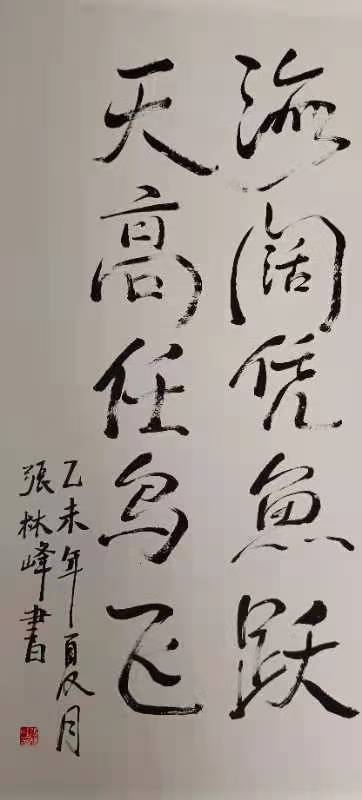 海阔凭鱼跃
天高任鸟飞
乙未年夏月
張林峰書